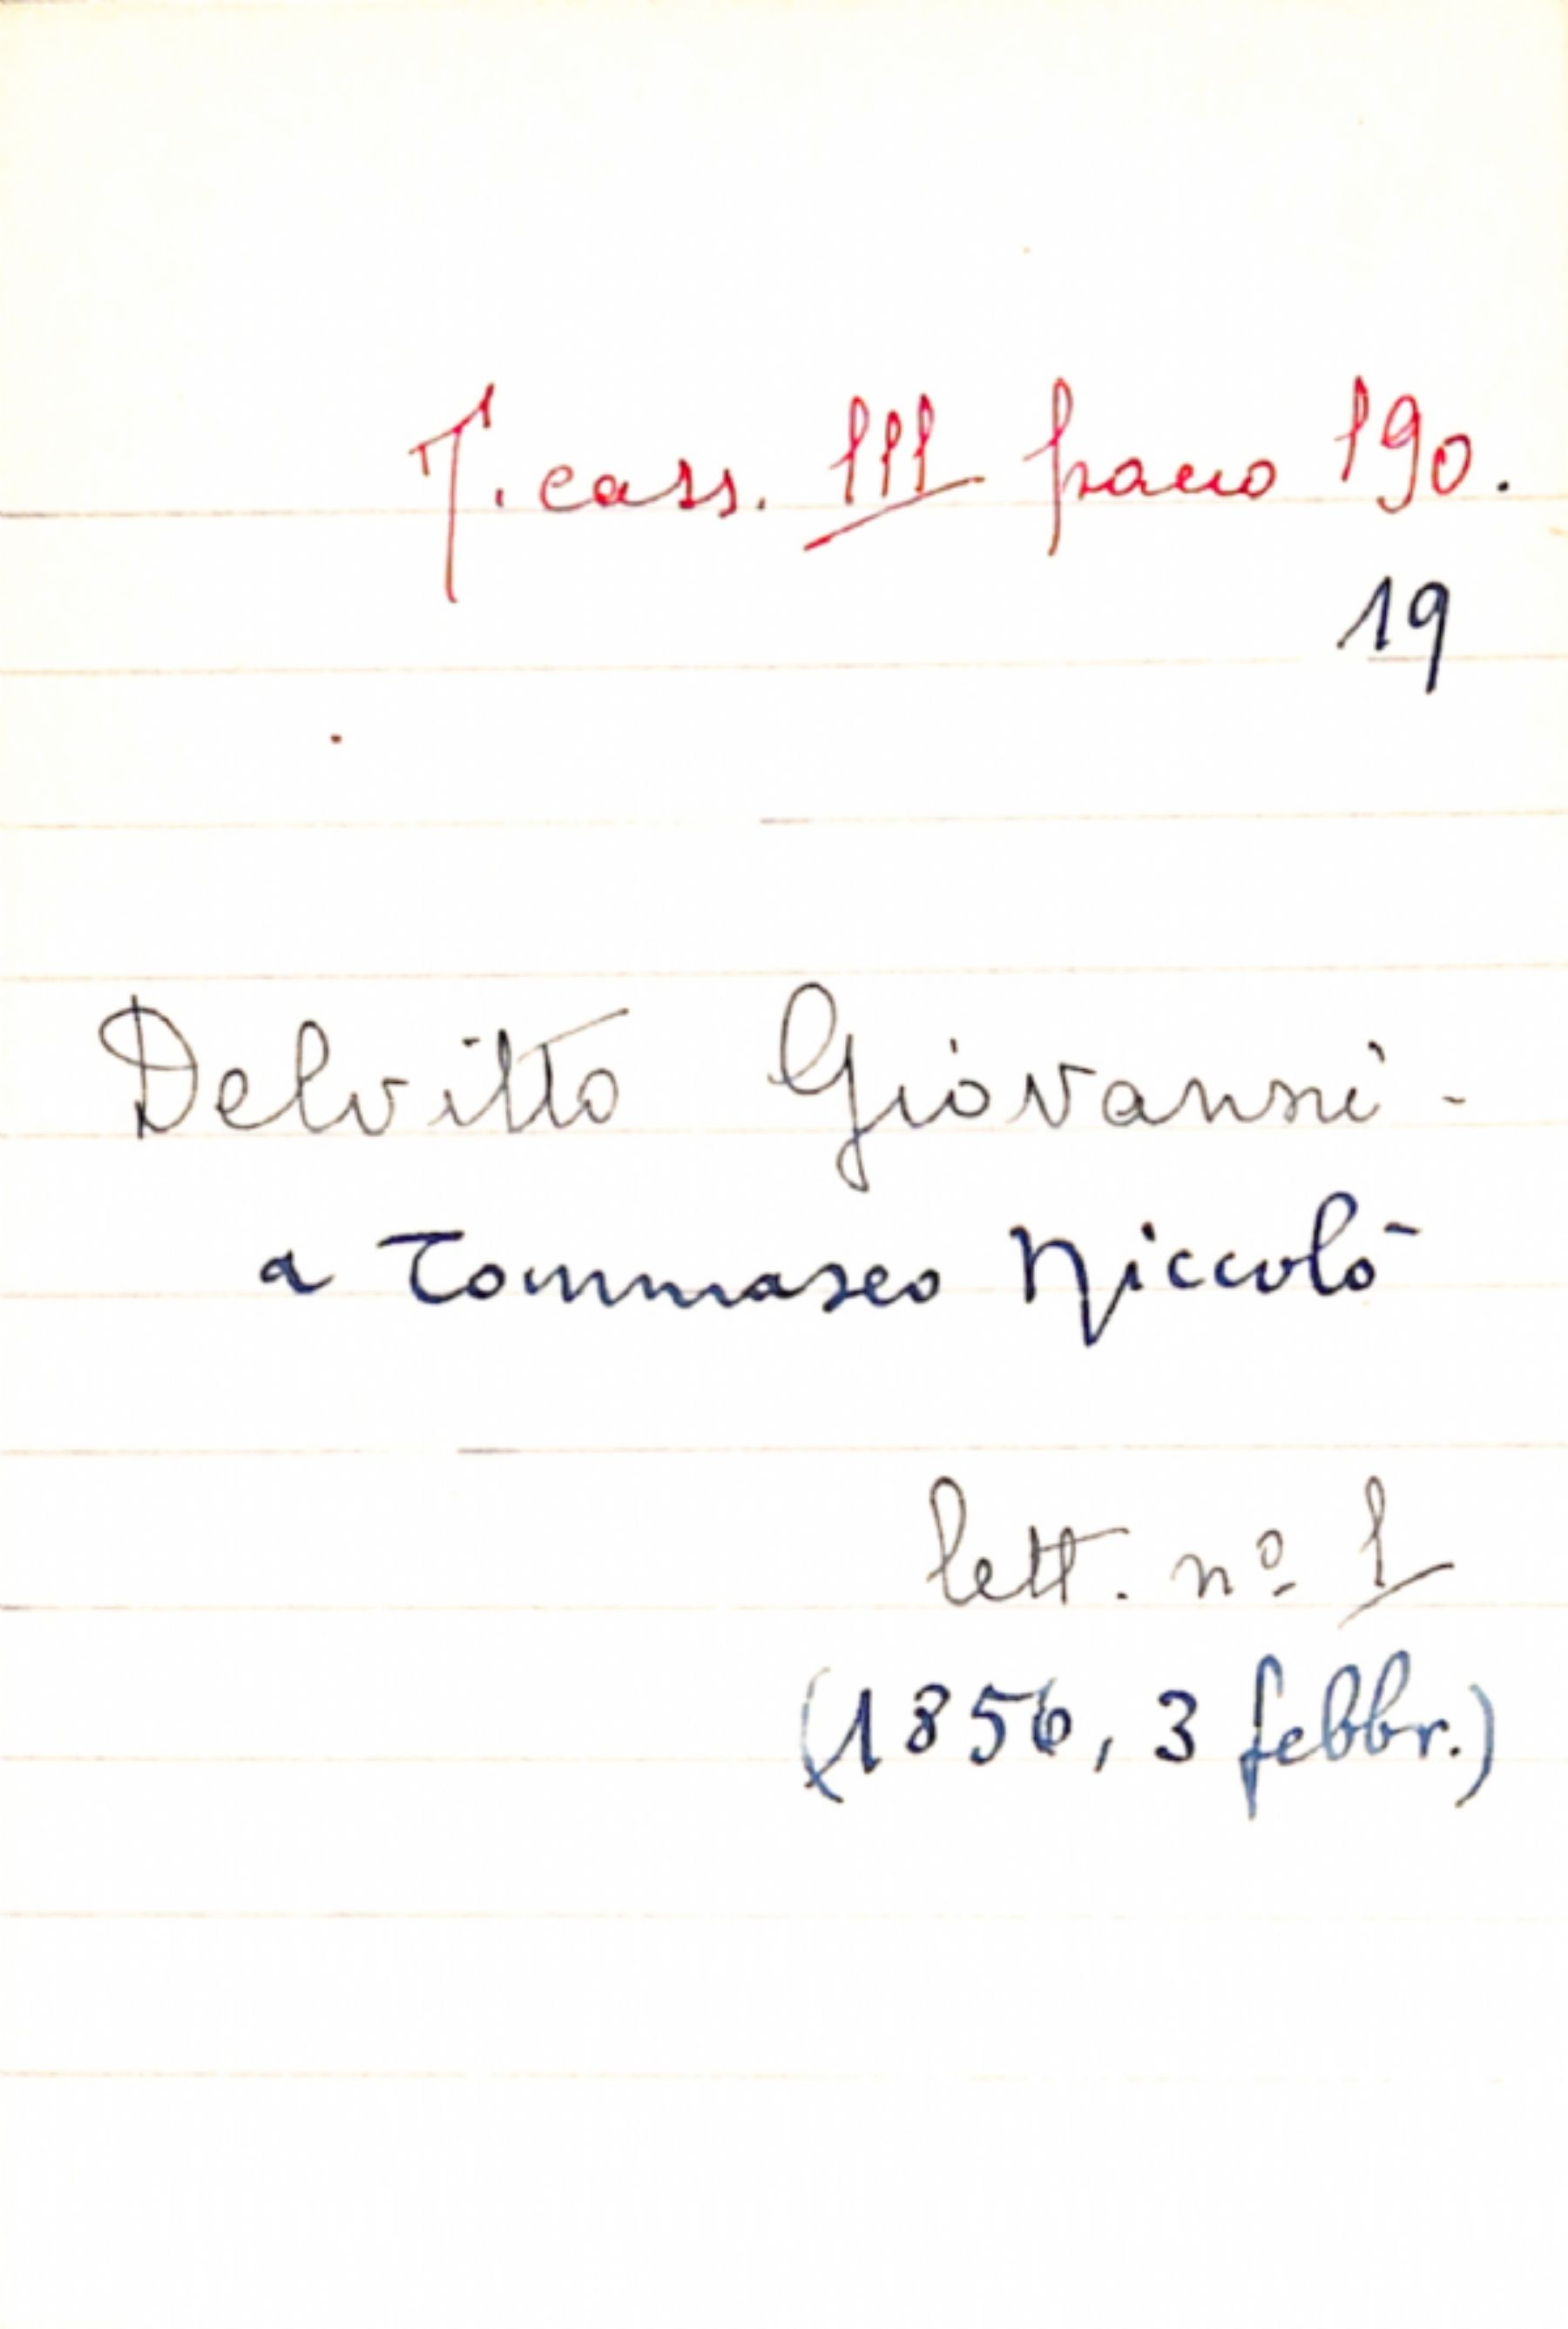 T. cass. III pacco 190.
19
Delvitto Giovanni -
a Tommaseo Niccolò
lett. nº 1
(1856, 3 febbr.)